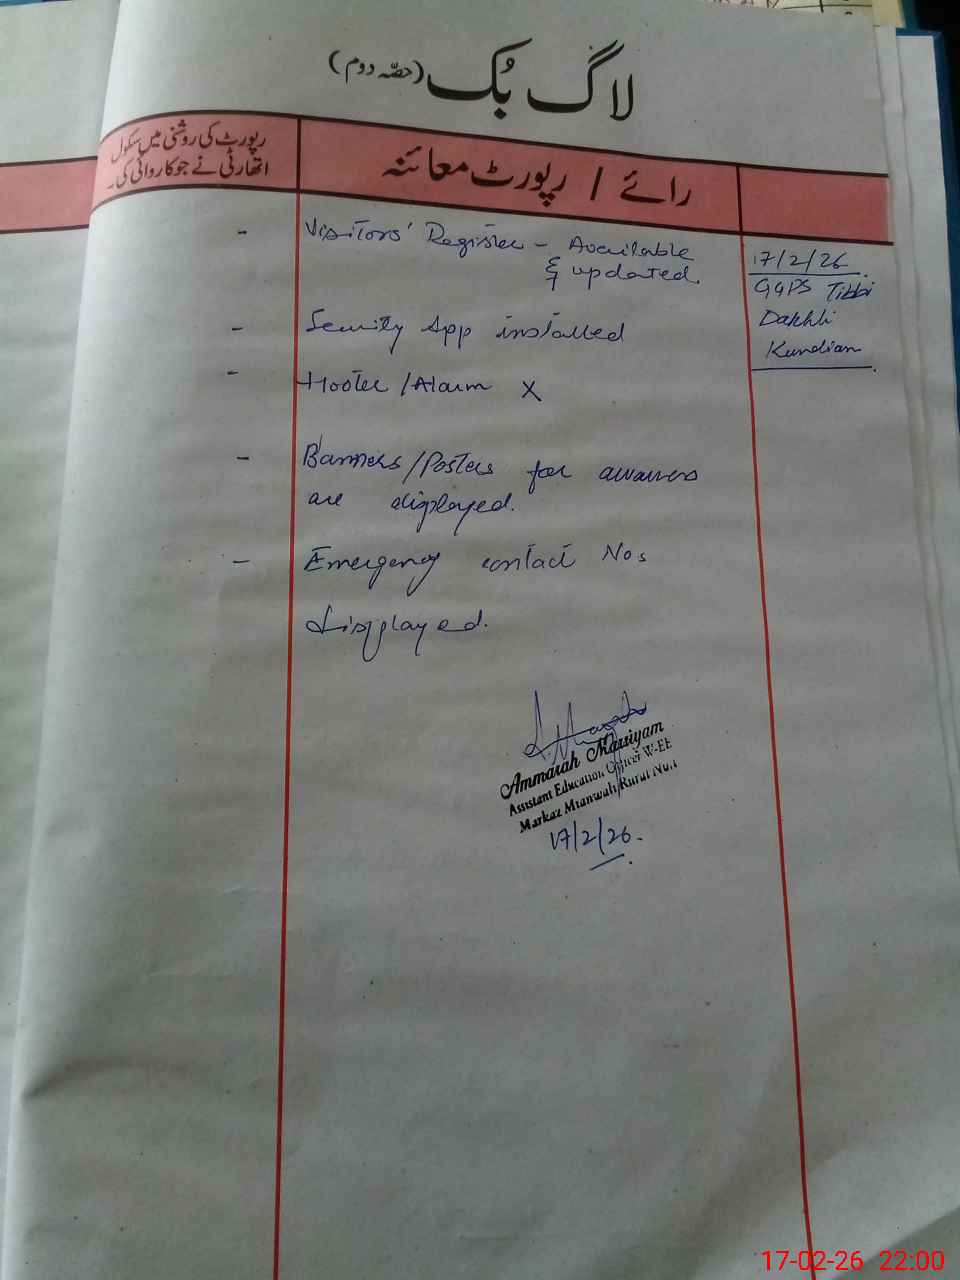 لاگ بُک (حصّہ دوم)
رائے / رپورٹ معائنہ
رپورٹ کی روشنی میں سکول
اتھارٹی نے جو کاروائی کی۔
17/2/26
GGPS Tibbi
Dakhli
Kundian
- Visitors' Register - Available
& updated.
- Security App installed
- Hooter/Alarm X
- Banners/Posters for awarness
are displayed.
- Emergency contact Nos
displayed.
Ammarah Marriyam
Assistant Education Officer W-EE
Markaz Mianwali Rural No.1
17/2/26.
17-02-26 22:00